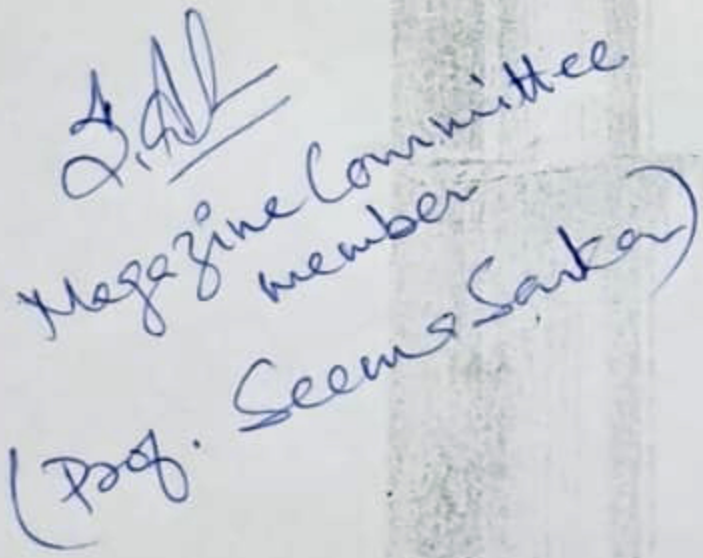 Magazine Committee
member
(Prof. Seema Sarkar)